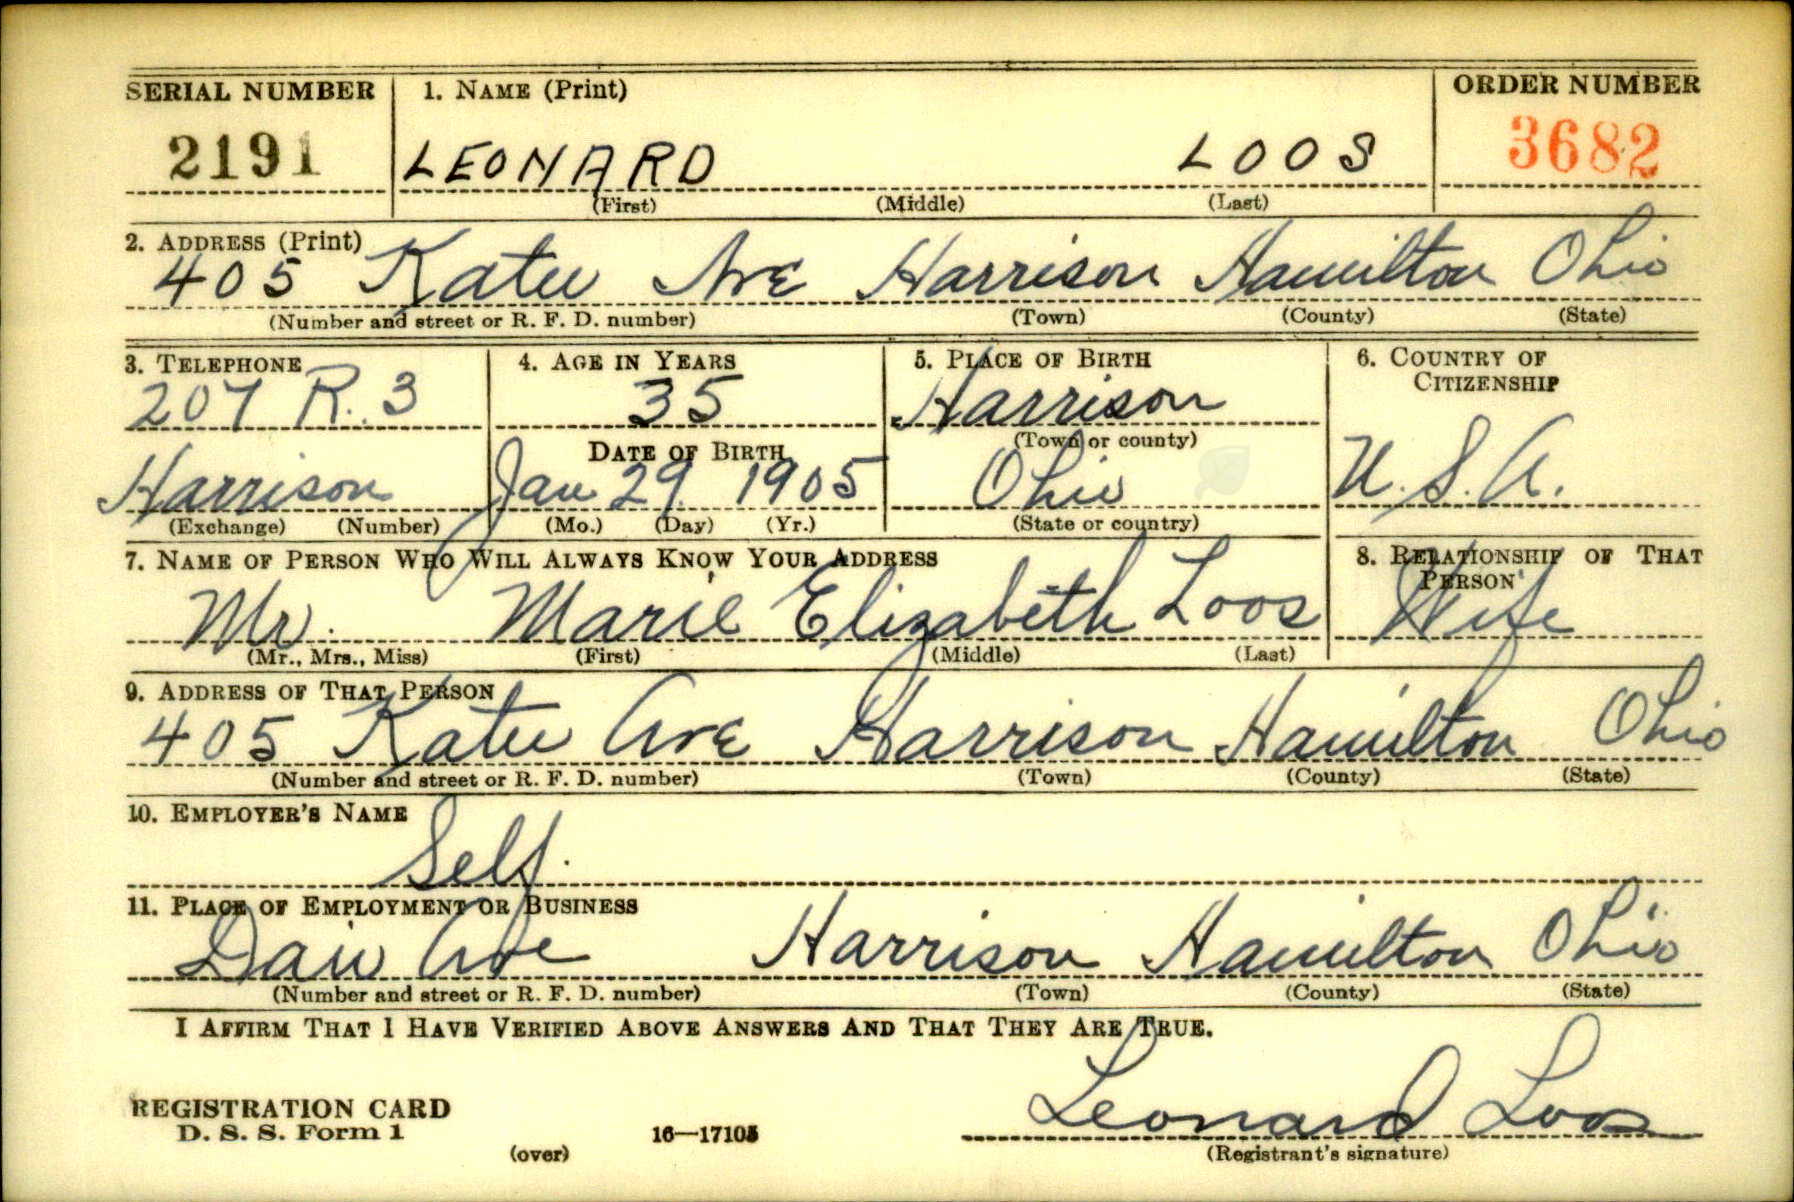 SERIAL NUMBER 1. NAME (Print) ORDER NUMBER
2191 LEONARD LOOS 3682
(First) (Middle) (Last)
2. ADDRESS (Print)
405 Ave Harrison Hamilton Ohio
(Number and street or R. F. D. number) (Town) (County) (State)
3. TELEPHONE 4. AGE IN YEARS 5. PLACE OF BIRTH 6. COUNTRY OF
CITIZENSHIP
207 R. 3 35 Harrison
DATE OF BIRTH (Town or county)
Harrison Jan 29 1905 Ohio U. S. A.
(Exchange) (Number) (Mo.) (Day) (Yr.) (State or country)
7. NAME OF PERSON WHO WILL ALWAYS KNOW YOUR ADDRESS 8. RELATIONSHIP OF THAT
PERSON
Marie Elizabeth Loos Wife
(Mr., Mrs., Miss) (First) (Middle) (Last)
9. ADDRESS OF THAT PERSON
405 Ave Harrison Hamilton Ohio
(Number and street or R. F. D. number) (Town) (County) (State)
10. EMPLOYER'S NAME
Self.
11. PLACE OF EMPLOYMENT OR BUSINESS
Ave Harrison Hamilton Ohio
(Number and street or R. F. D. number) (Town) (County) (State)
I AFFIRM THAT I HAVE VERIFIED ABOVE ANSWERS AND THAT THEY ARE TRUE.
Leonard Loos
REGISTRATION CARD
D. S. S. Form 1 16—17105
(over) (Registrant's signature)